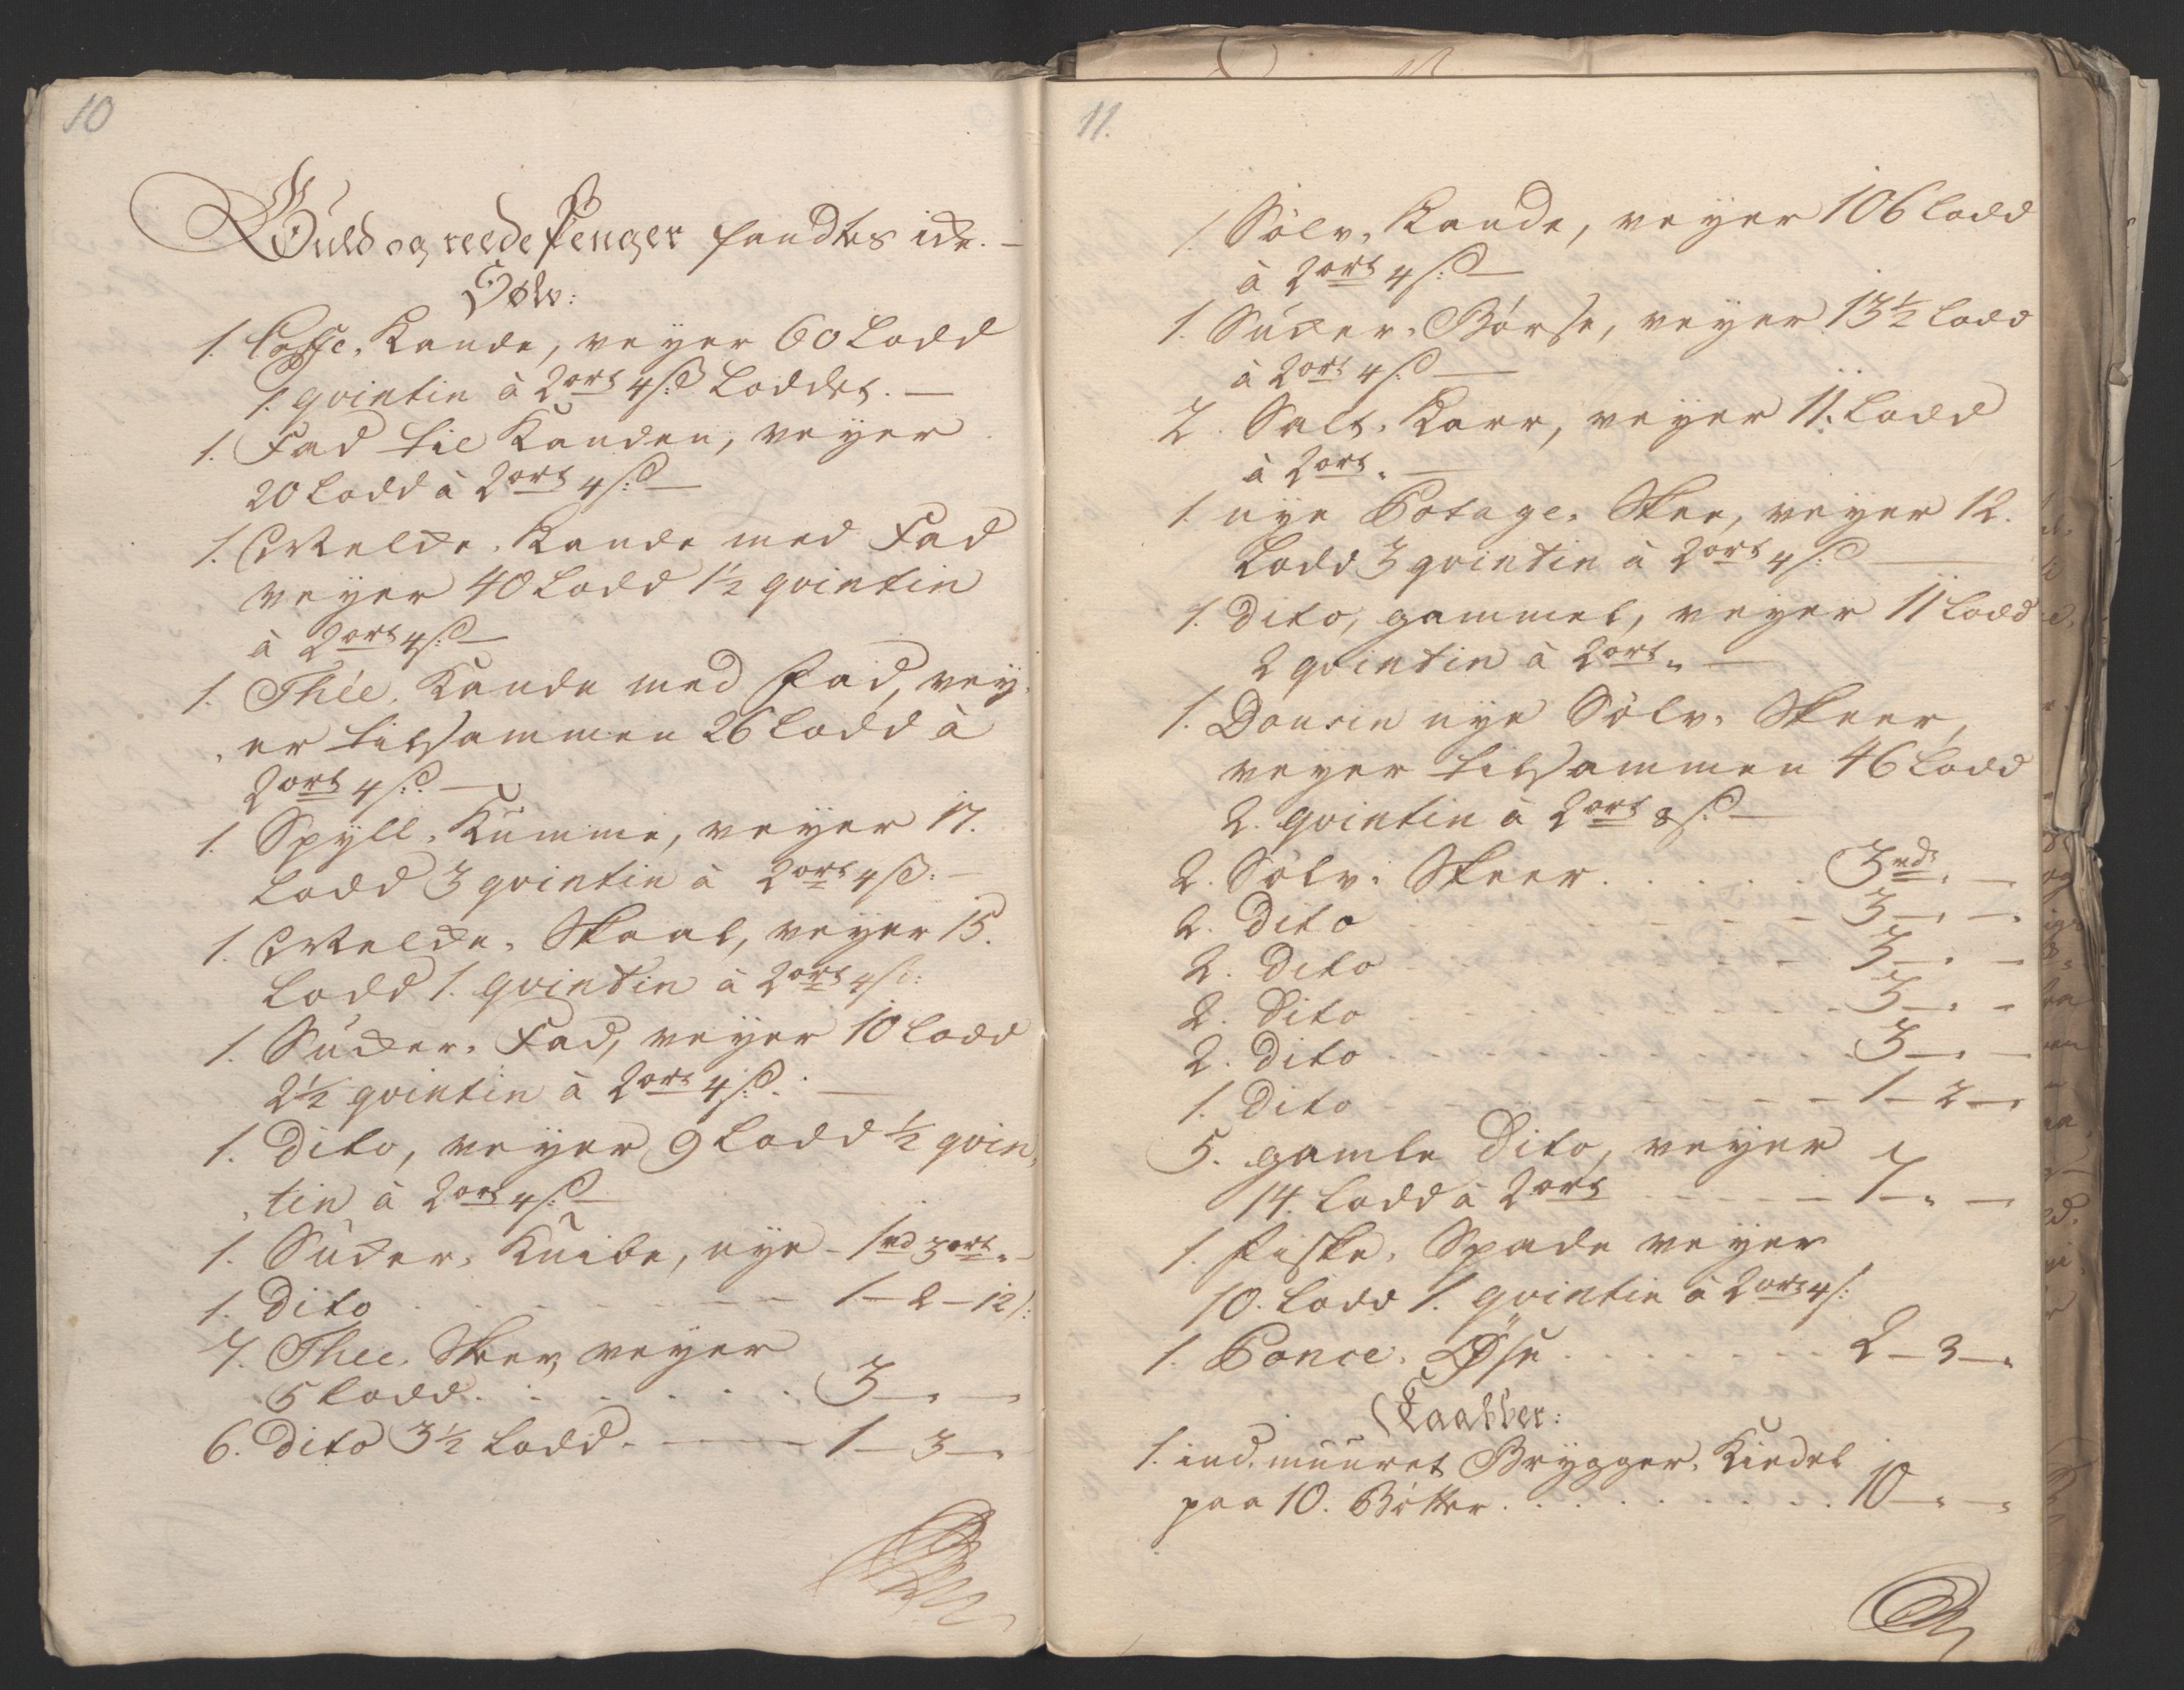 10
Guld og reede Penger fandtes icke. —
Sölv:
1. Coffe, Kande, veyer 60 Lodd
1. qvintin à 2 ort 4 ß Loddet. —
1. Fad til Kanden, veyer
20 Lodd à 2 ort 4 ß —
1. Melcke, Kande med Fad
veyer 40 Lodd 1½ qvintin
à 2 ort 4 ß —
1. Thée, Kande med Fad, vey,
,er tilsammen 26 Lodd à
2 ort 4 ß. —
1. Spyll, Kumme, veyer 17.
Lodd 3 qvintin à 2 ort 4 ß: —
1. Melcke, Skaal, veyer 15.
Lodd 1. qvintin à 2 ort 4 ß:
1. Sucker, Fad, veyer 10 Lodd
2½ qvintin à 2 ort 4 ß. —
1. Dito, veyer 9 Lodd ½ qvin,
,tin à 2 ort 4 ß —
1. Sucker, Knibe, nye - 1 rd 3 ort „ -
1. Dito - - - - - 1 - 2 - 12 ß:
7. Thee, Skeer, veyer
5 Lodd. . . . . . . 3 - „ -
6. Dito 3½ Lodd. - — 1 - 3 - „
11.
1. Sölv, Kande, veyer 106 Lodd
à 2 ort 4 ß —
1. Sucker, Börse, veyer 13½ Lodd
à 2 ort 4 ß —
2. Salt, Karr, veyer 11. Lodd
à 2 ort „ —
1. nye Potage, Skee, veyer 12.
Lodd 3 qvintin à 2 ort 4 ß —
1. Dito, gammel, veyer 11 Lodd
2 qvintin à 2 ort „ —
1. Dousin nye Sölv, Skeer,
veyer tilsammen 46 Lodd
2. qvintin à 2 ort 8 ß —
2. Sölv, Skeer. . . . . . 3 rd „ -
2. Dito - - - - - 3 - „ -
2. Dito - - - - - 3 - „ -
2. Dito - - - - - 3 - „ -
2. Dito - - - - - 3 - „ -
1. Dito - - - - - 1 - 2 - „
5. gamle Dito, veyer
14. Lodd à 2 ort - - - - 7 - „ -
1. Fiske, Spade veyer
10. Lodd 1. qvintin à 2 ort 4 ß:
1. Ponce, Øse . . . . . . . 2 - 3 - „
Kaabber:
1. ind,muuret Brygger, Kiedel
paa 10. Bötter. . . . . . . . 10 - „ - „